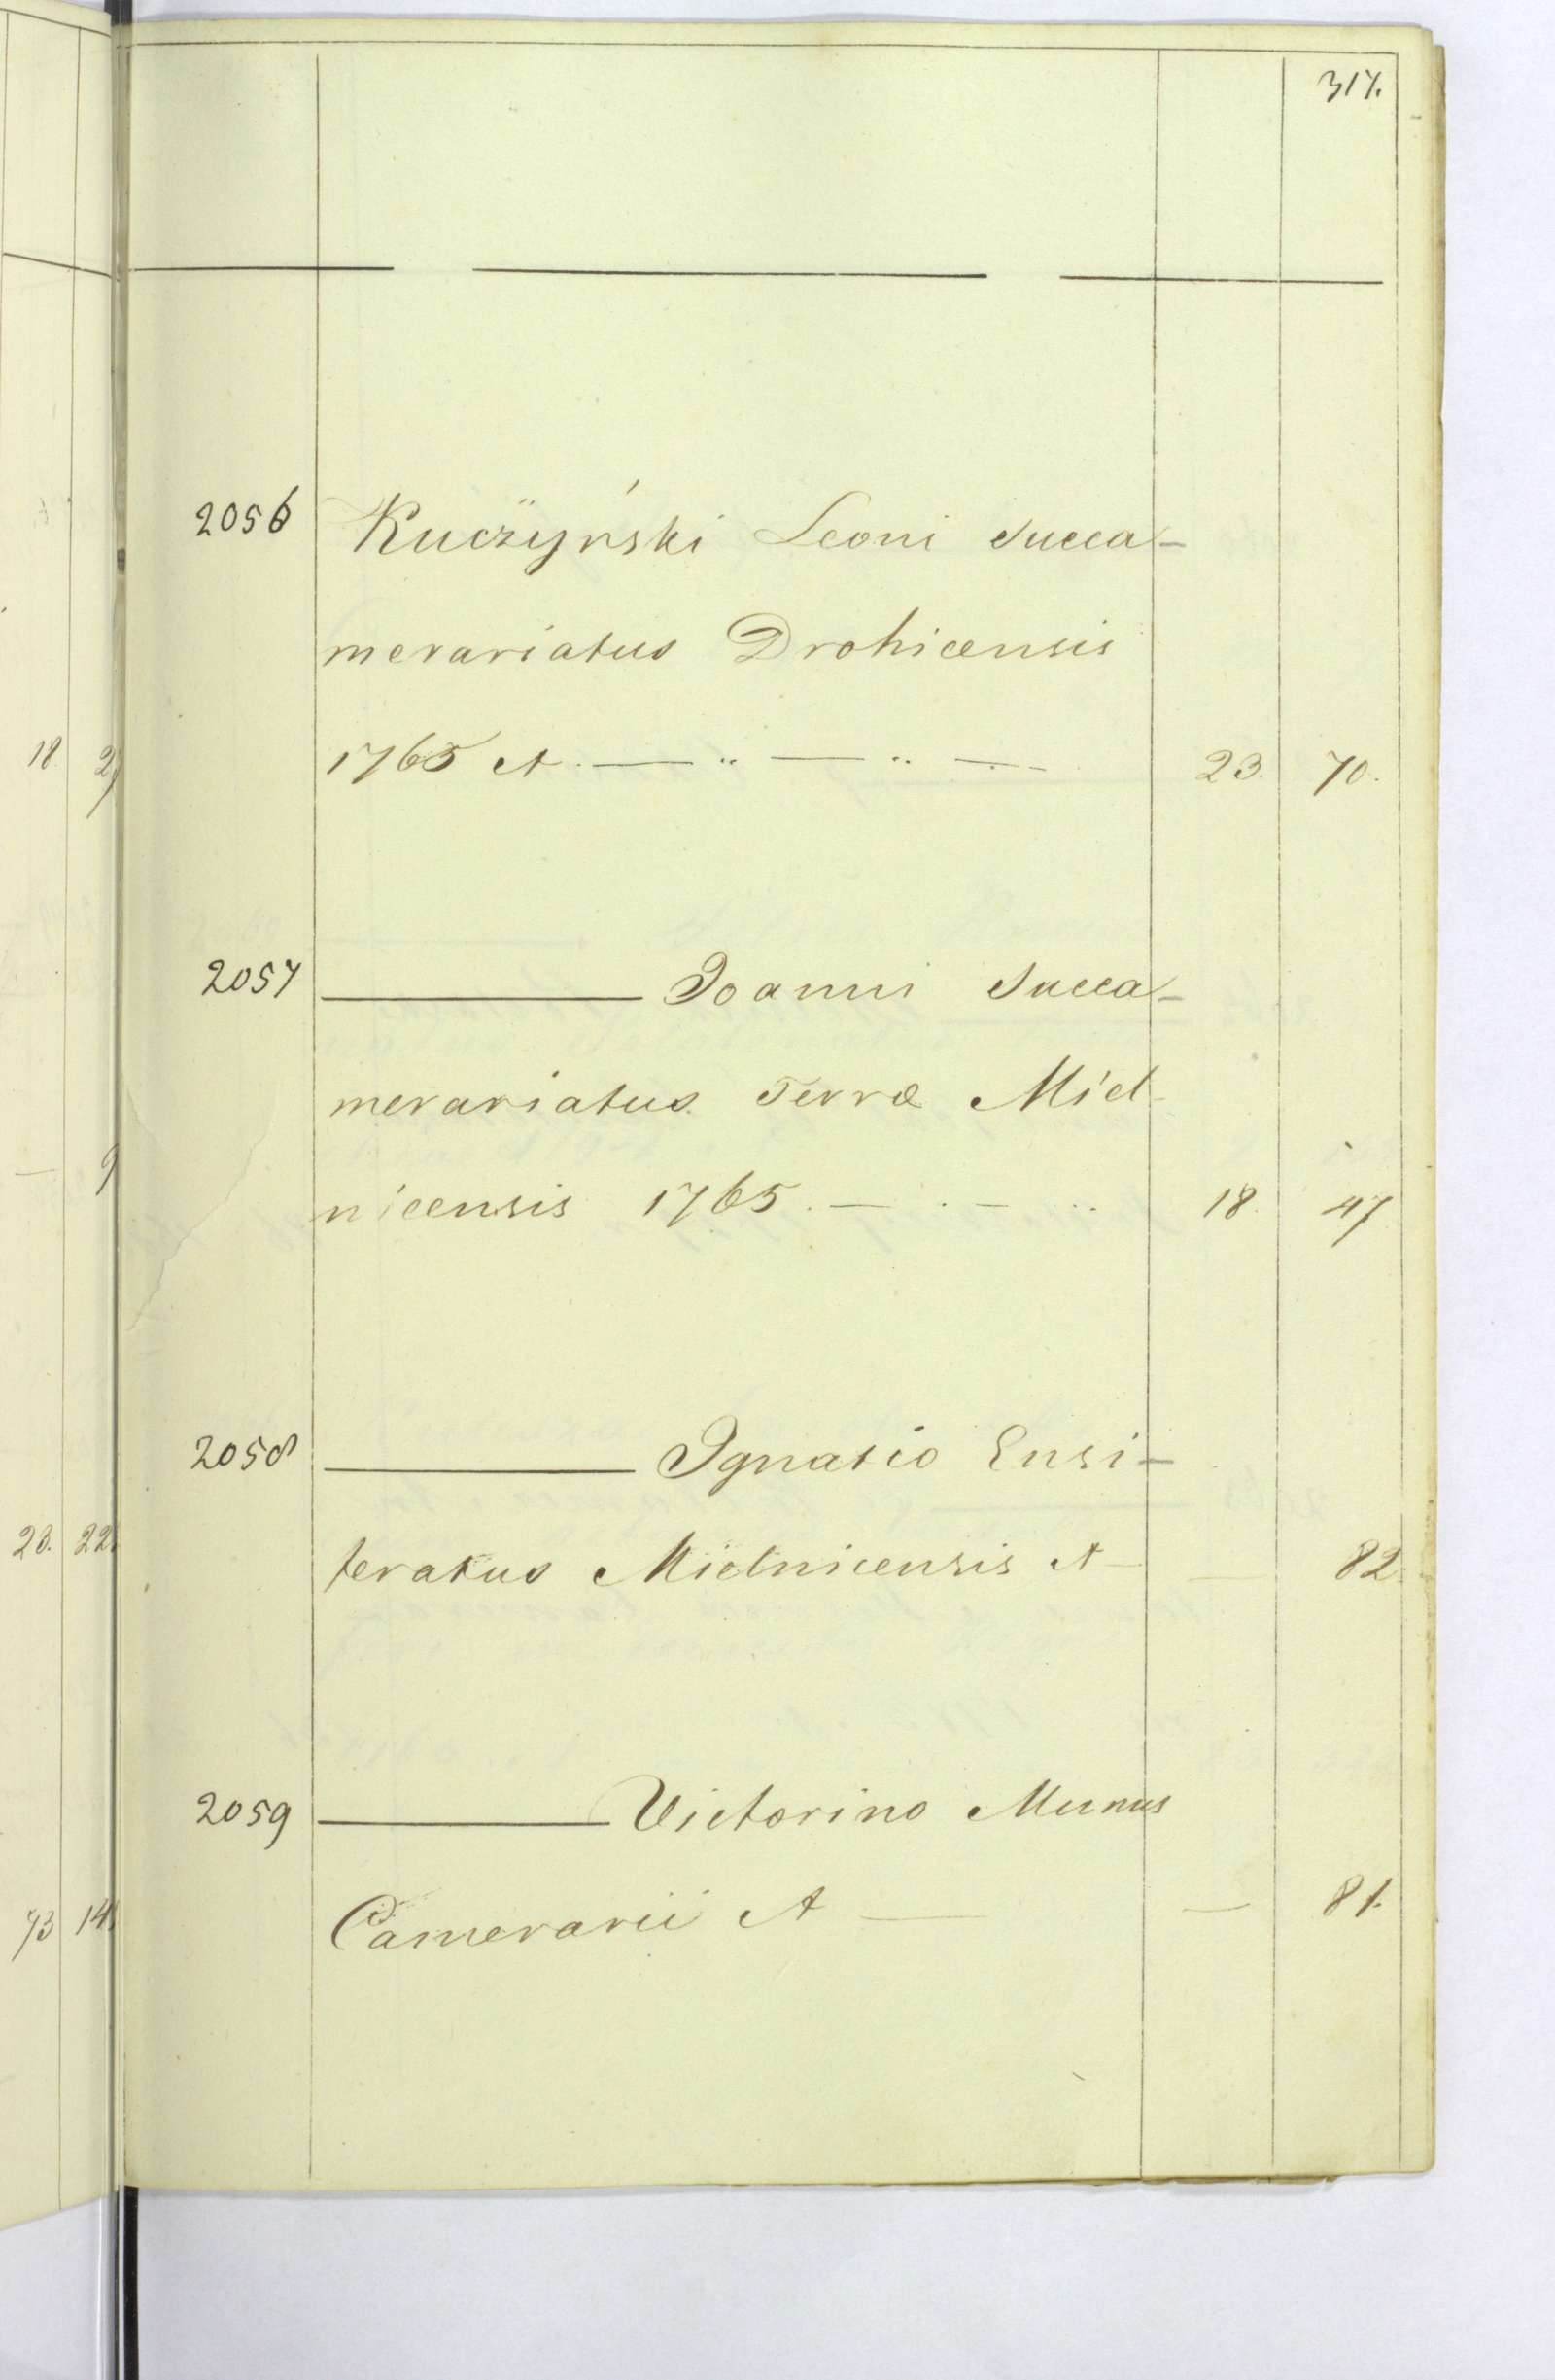 317.
2056 Kuczyński Leoni Succa-
merariatus Drohicensis
1765 A. — .. — .. — 23. 70.
2057 ——— Joanni Succa-
merariatus Terræ Miel-
nicensis 1765. — . — .. 18. 47
2058 ——— Ignatio Ensi-
feratus Mielnicensis A — — 82.
2059 ——— Victorino Munus
Camerarii A — — 81.
18 2
— 9
23. 22
73 141